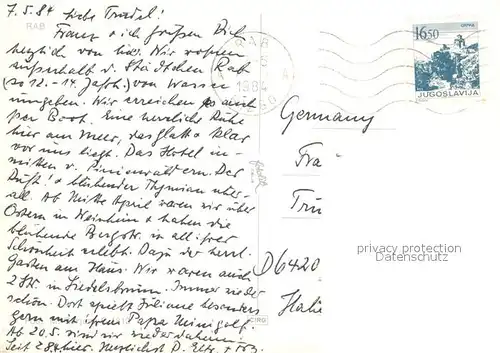 7.5.84 Liebe Trudel!
RAB
Franz + ich grüßen Dich
herzlich von hier. Wir wohnen
außerhalb d. Städtchen Rab
(so 12. - 14. Jahrh.) von Wasser
umgeben. Wir erreichen es auch
per Boot. Eine herrliche Ruhe
hier am Meer, das glatt + klar
vor uns liegt. Das Hotel in-
mitten v. Pinienwald ern. Der
Duft! + blühender Thymian über-
all. Ab Mitte April waren wir über
Ostern in Weinheim + haben die
blühende Bergstr. in all ihrer
Schönheit erlebt. Dazu der herrl.
Garten am Haus. Wir waren auch
2 Std. in Siedelsbrunn. Immer wieder
schön. Dort spielt Filiane besonders
gern mit ihrem Papa Minigolf.
Ab 20.5. sind wir wieder daheim.
Seit 28. hier. Herzlichst D.
RAB
5
1984
16,50
JUGOSLAVIJA
Germany
Fra
Tru
privacy protection
Datenschutz
D6420